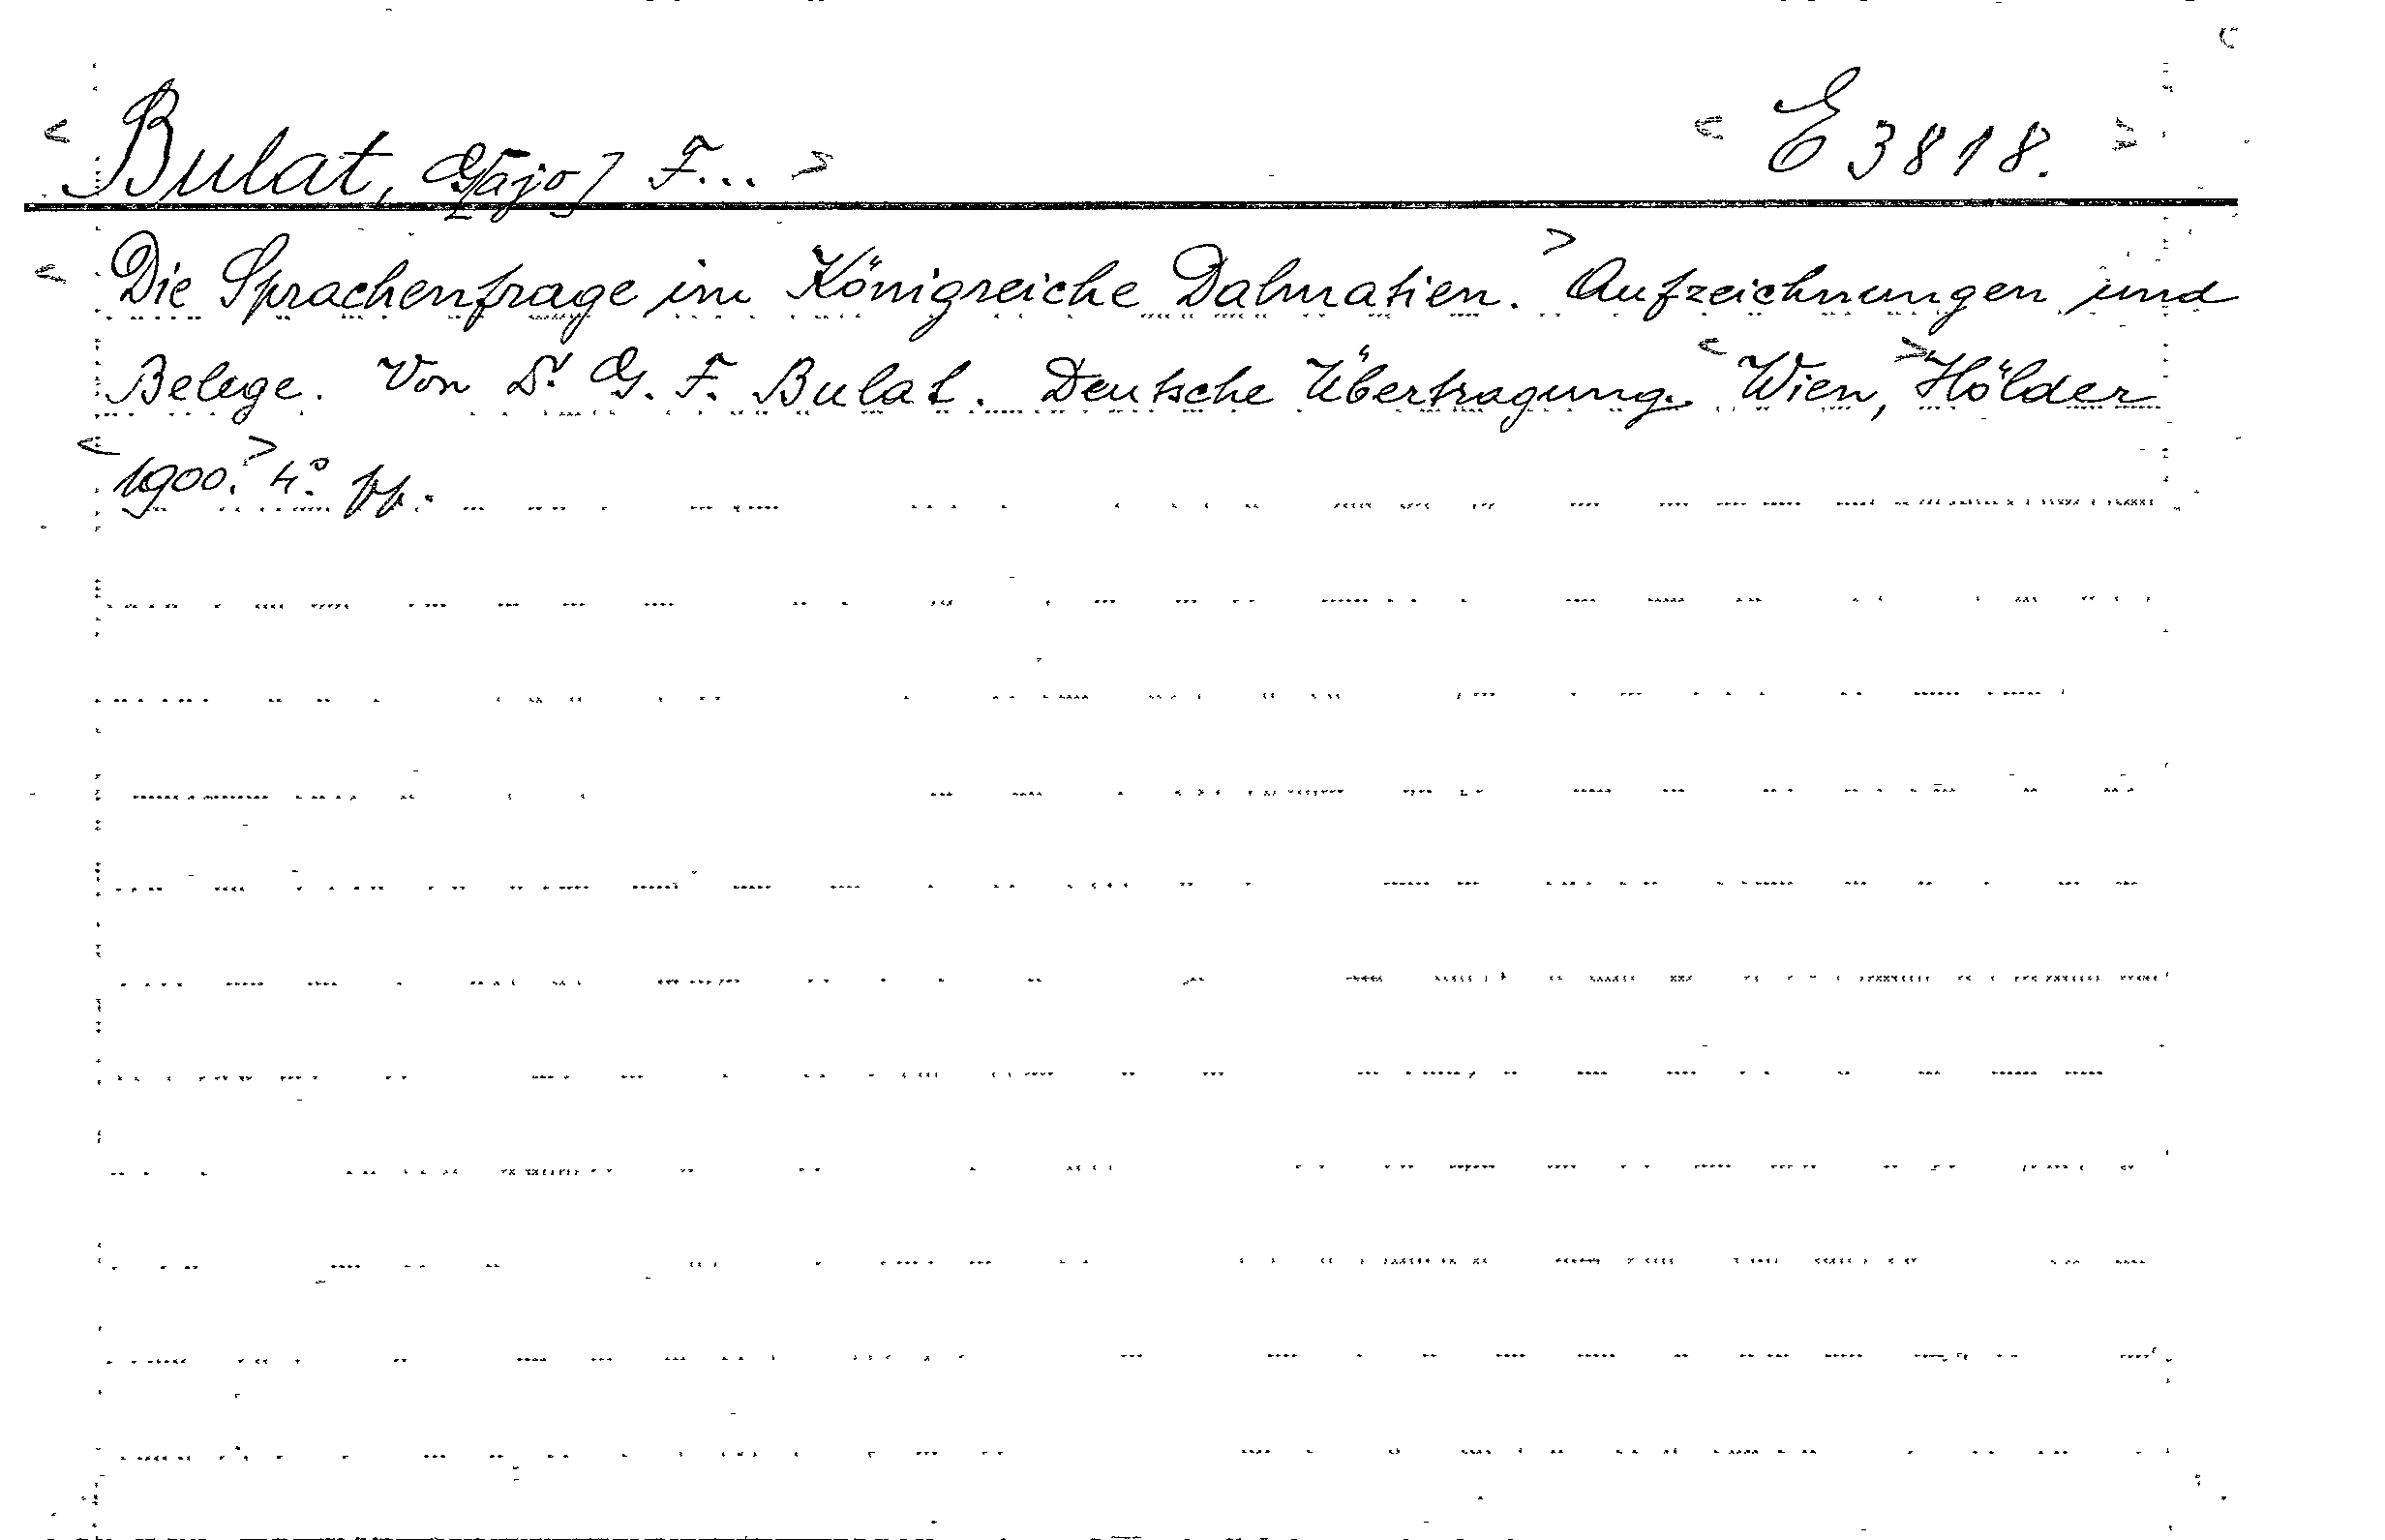 < Bulat, G[ajo] F... > < E 3818. >
< Die Sprachenfrage im Königreiche Dalmatien. > Aufzeichnungen und
Belege. Von Dr. G. F. Bulat. Deutsche Übertragung. < Wien, > Hölder
< 1900. > 4.° pp.